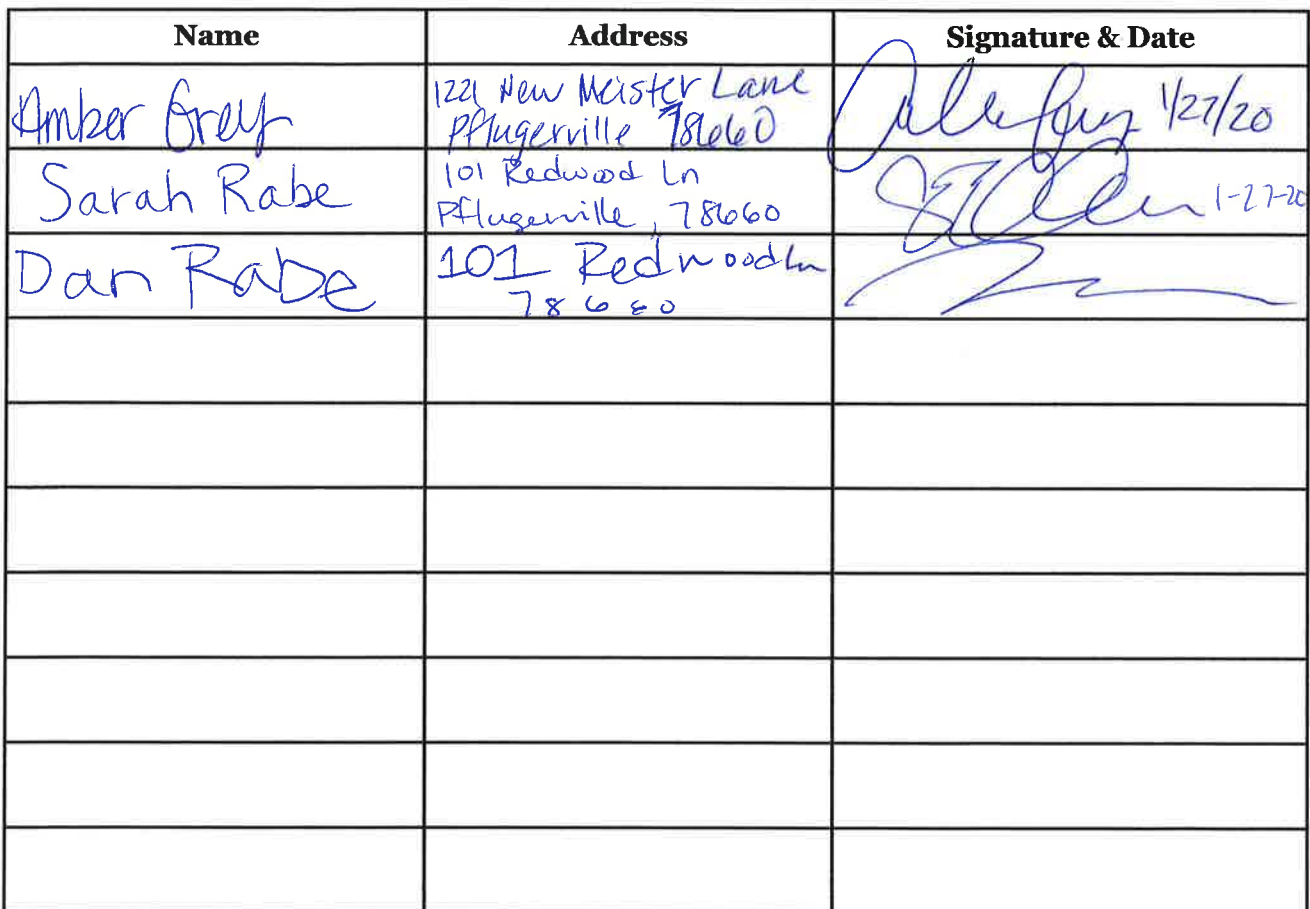 Name Address Signature & Date
Amber Grey 1221 New Meister Lane
Pflugerville 78660 1/27/20
Sarah Rabe 101 Redwood Ln
Pflugerville, 78660 1-27-20
Dan Rabe 101 Redwood Ln
78660